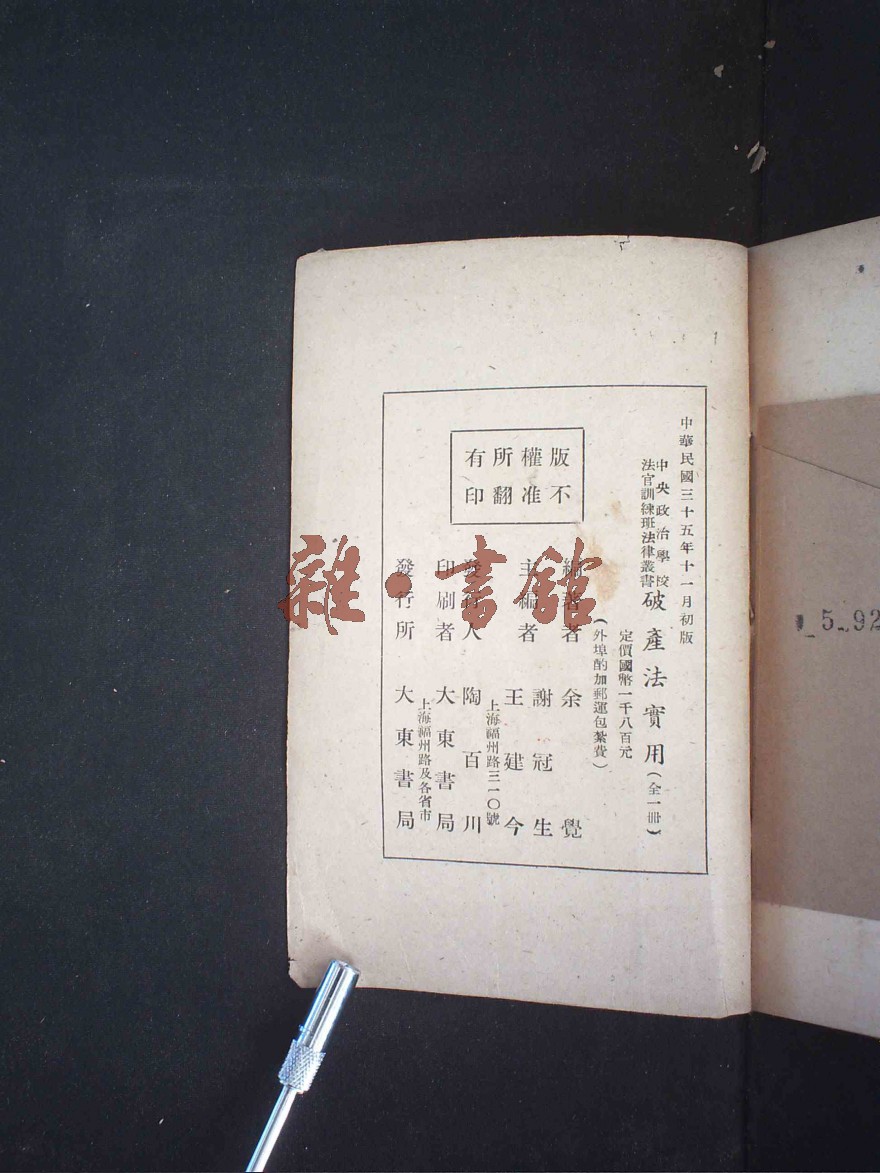 中華民國三十五年十一月初版
中央政治學校
法官訓練班法律叢書
破產法實用(全一冊)
定價國幣一千八百元
(外埠酌加郵運包紮費)
版權所有
不准翻印
編著者 余覺
主編者 謝冠生
王建今
上海福州路三一〇號
發行人 陶百川
印刷者 大東書局
上海福州路及各省市
發行所 大東書局
雜·書館
5 92